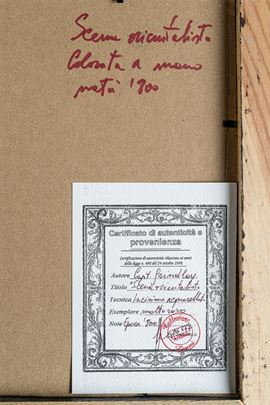 Scena orientalista
Colorata a mano
metà '900
Certificato di autenticità e
provenienza
Certificazione di autenticità rilasciata ai sensi
della legge n. 490 del 29 ottobre 1999.
Autore Capt.
Titolo "Scena orientalista
Tecnica Incisione acquerellata
Esemplare molto raro
Note Epoca '800